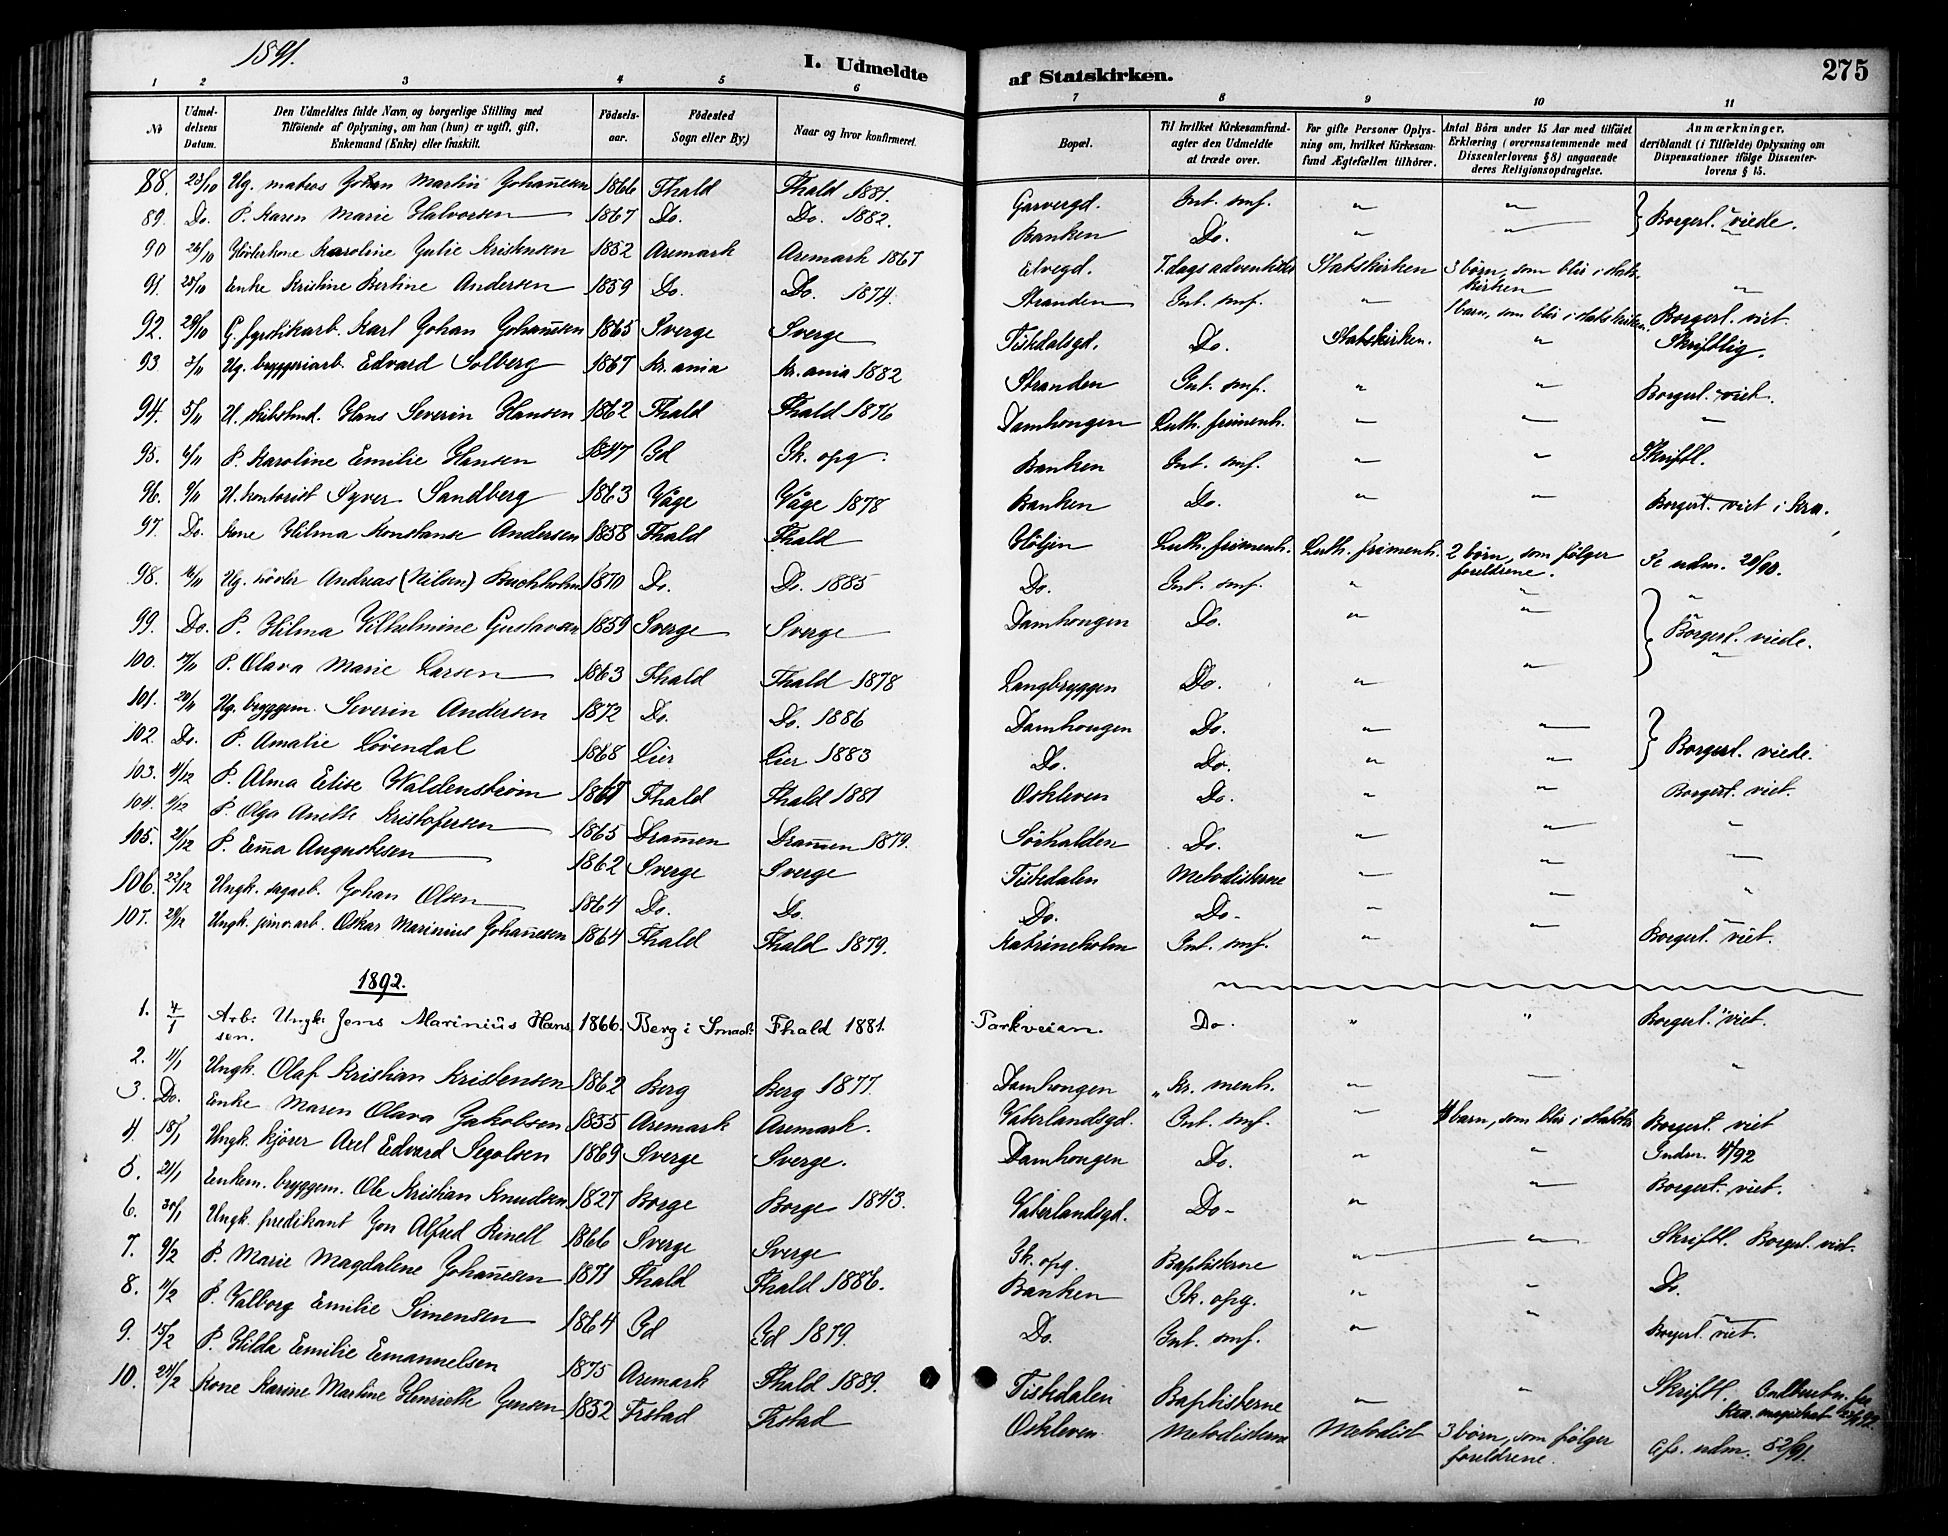 1891.
I. Udmeldte af Statskirken.
275
1 2 3 4 5 6 7 8 9 10 11
No
Udmel-
delsens
Datum.
Den Udmeldtes fulde Navn og borgerlige Stilling med
Tilføiende af Oplysning, om han (hun) er ugift, gift,
Enkemand (Enke) eller fraskilt.
Fødsels-
aar.
Fødested
Sogn eller By)
Naar og hvor konfirmeret.
Bopæl.
Til hvilket Kirkesamfund-
agter den Udmeldte
at træde over.
For gifte Personer Oplys-
ning om, hvilket Kirkesam-
fund Ægtefællen tilhører.
Antal Børn under 15 Aar med tilføiet
Erklæring (overensstemmende med
Dissenterlovens § 8) angaaende
deres Religionsopdragelse.
Anmærkninger,
deriblandt (i Tilfælde) Oplysning om
Dispensationer ifølge Dissenter-
lovens § 15.
88. 23/10 Ug. matros Johan Martin Johannesen 1866 Fhald Fhald 1881. Garvergd. Int. smf. " " } Borgerl. viede.
89. Do. P. Karen Marie Halvorsen 1867 Do. Do. 1882. Banken Do. " "
90 26/10 Karoline Julie Kristensen 1852 Aremark Aremark 1867 Elvegd. 7. dags adventister Statskirken 3 børn, som blir i stats-
kirken "
91. 28/10 Enke Kristine Bertine Andersen 1859 Do. Do. 1874. Stranden Int. smf. " 1 barn, som blir i statskirken. Borgerl. viet.
92. 28/10 G. fyrstikarb. Karl Johan Johannesen 1865 Sverge Sverge Tistedalsgd. Do. Statskirken. " Skriftlig.
93. 3/11 Ug. bryggeriarb. Edvard Solberg 1867 Kr.ania Kr.ania 1882 Stranden Int. smf. " " Borgerl. viet.
94. 5/11 U. skibstmd. Hans Severin Hansen 1862 Fhald Fhald 1876 Damhougen Luth. frimenh. " " "
95. 6/11 P. Karoline Emilie Hansen 1847 Id Ik. opg. Banken Int. smf. " " Skriftl.
96. 9/11 U. kontorist Syver Sandberg 1863 Våge Våge 1878 Banken Do. " " Borgerl. viet i Kra.
97. Do. Kone Hilma Konstanse Andersen 1858 Fhald Fhald Høljin Luth. frimenh. Luth. frimenh. 2 børn, som følger
foreldrene. Se udm. 20/90.
98. 16/11 Ug. høvler Andreas (Nilsen) Buchholm 1870 Do. Do. 1885 Do. Int. smf. " " "
99. Do. P. Hilma Vilhelmine Gustavsen 1859 Sverge Sverge Damhougen Do. " " } Borgerl. viede.
100. 17/11 P. Olava Marie Larsen 1863 Fhald Fhald 1878 Langbryggen Do. " " "
101. 20/11 Ug. bryggem. Severin Andersen 1872 Do. Do. 1886 Damhougen Do. " " } Borgerl. viede.
102. Do. P. Amalie Løvendal 1868 Lier Lier 1883 Do. Do. " "
103. 4/12 P. Alma Elise Waldenstrøm 1867 Fhald Fhald 1881 Oskleven Do. " " Borgerl. viet.
104. 9/12 P. Olga Anette Kristofersen 1865 Drammen Drammen 1879. Sørhalden Do. " " "
105. 21/12 P. Emma Augustesen 1862 Sverge Sverge Tistedalen Metodisterne " " "
106. 22/12 Ungk. sagarb. Johan Olsen 1864 Do. Do. Do. Do. " " "
107. 29/12 Ungk. jernv.arb. Oskar Marinius Johannesen 1864 Fhald Fhald 1879. Katrineholm Int. smf. " " Borgerl. viet.
1892.
1. 4/1 Arb: Ungk: Jens Marinius Han-
sen. 1866. Berg i Smaal: Fhald 1881. Parkveien. Do. " " Borgerl. viet.
2. 11/1 Ungk. Olaf Kristian Kristensen 1862 Berg Berg 1877. Damhougen Kr. menh. " " "
3. Do. Enke Maren Olava Jakobsen 1855 Aremark Aremark. Vaterlandsgd. Int. smf. " 4 barn, som blir i statsk. Borgerl. viet
4. 18/1 Ungk. kjører Axel Edvard Segolsen 1869 Sverge Sverge. Damhougen Do. " " Indm. 4/92
5. 21/1 Enkem. bryggem. Ole Kristian Knudsen 1827 Borge Borge 1843. Vaterlandsgd. Do. " " Borgerl. viet.
6. 30/1 Ungk. predikant Jon Alfred Rinell 1866 Sverge Sverge Ik. opg. Baptisterne " " Skriftl. Borgerl. viet.
7. 9/2 P. Marie Magdalene Johannesen 1871 Fhald Fhald 1886. Banken Ik. opg. " " Do.
8. 11/2 P. Valborg Emilie Simensen 1864 Id Id 1879. Do. Int. smf. " " Borgerl. viet.
9. 15/2 P. Hilda Emilie Emanuelsen 1875 Aremark Fhald 1889. Tistedalen Baptisterne " " Skriftl.
Kra. magistrat
10. 24/2 Kone Karine Martine Henriette Jensen 1852 Frstad Frstad Oskleven Metodisterne Metodist 3 børn, som følger
foreldrene. Cfr. udm. 52/91.